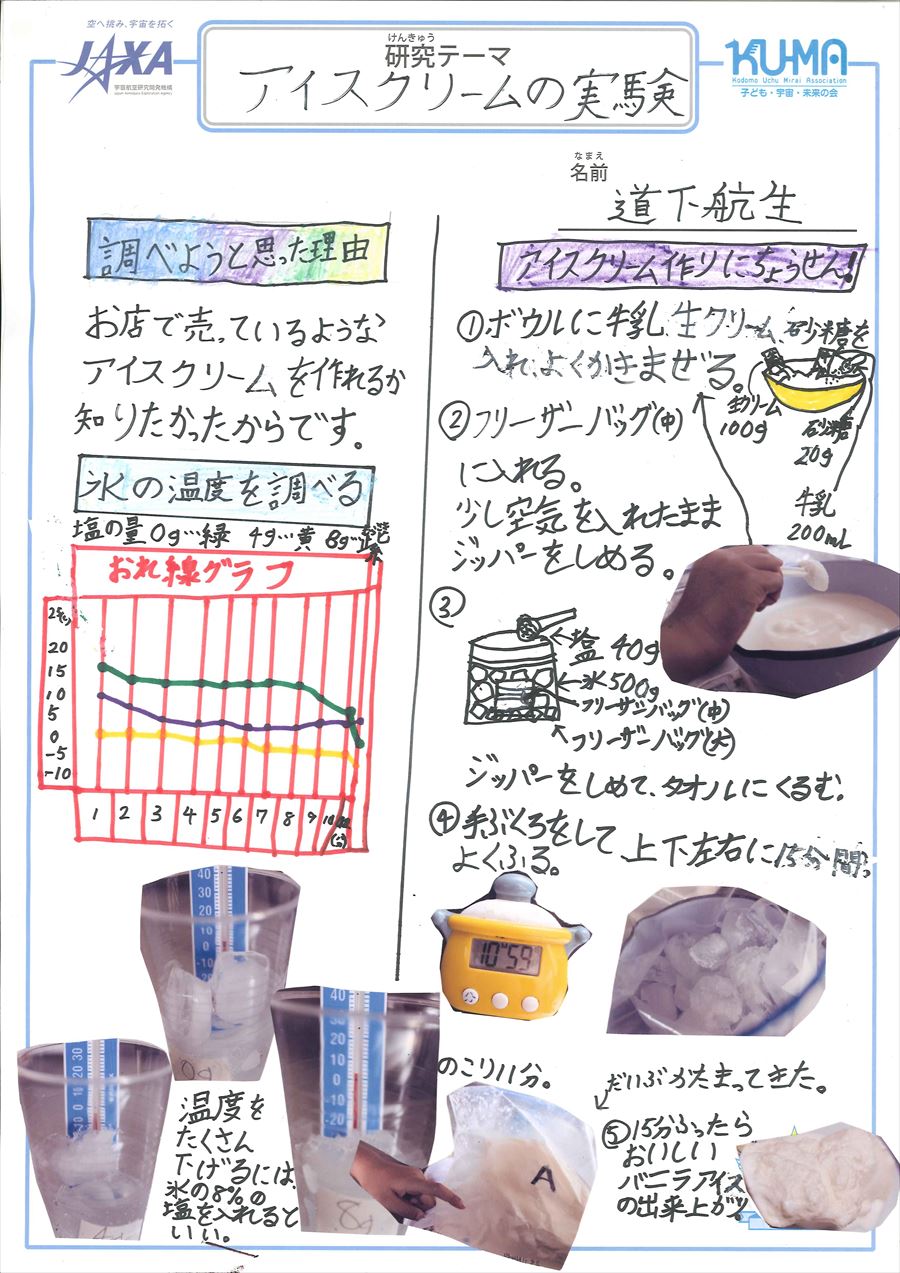 空へ挑み、宇宙を拓く
JAXA
宇宙航空研究開発機構
Japan Aerospace Exploration Agency
けんきゅう
研究テーマ
アイスクリームの実験
KUMA
Kodomo Uchu Mirai Association
子ども・宇宙・未来の会
なまえ
名前
道下航生
調べようと思った理由
お店で売っているような
アイスクリームを作れるか
知りたかったからです。
氷の温度を調べる
塩の量 0g…緑 4g…黄 8g…
おれ線グラフ
20
15
10
5
0
-5
-10
1 2 3 4 5 6 7 8 9 10
(分)
40
30
20
10
0
-10
0g
40
30
20
10
0
-10
-20
8g
20 30
温度を
たくさん
下げるには、
氷の8%の
塩を入れると
いい。
アイスクリーム作りにちょうせん!
①ボウルに牛乳、生クリーム、砂糖を
入れ、よくかきまぜる。
生クリーム
100g
砂糖
20g
牛乳
200mL
②フリーザーバッグ(中)
に入れる。
少し空気を入れたまま
ジッパーをしめる。
③
塩 40g
氷500g
フリーザーバッグ(中)
フリーザーバッグ(大)
ジッパーをしめて、タオルにくるむ。
④手ぶくろをして、上下左右に15分間、
よくふる。
10 59
分
のこり11分。
だいぶかたまってきた。
A
⑤15分ふったら
おいしい
バニラアイス
の出来上がり!